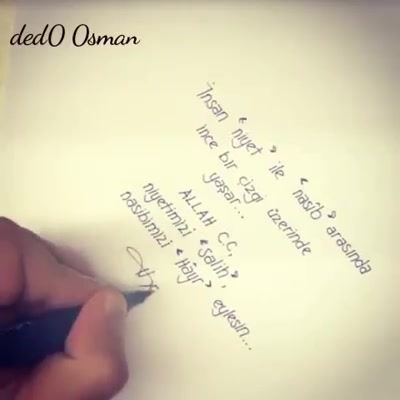 dedO Osman
İnsan "niyet" ile "nasib" arasında
ince bir çizgi üzerinde
yaşar...
ALLAH C.C,
niyetimizi "Salih",
nasibimizi "Hayır" eylesin...